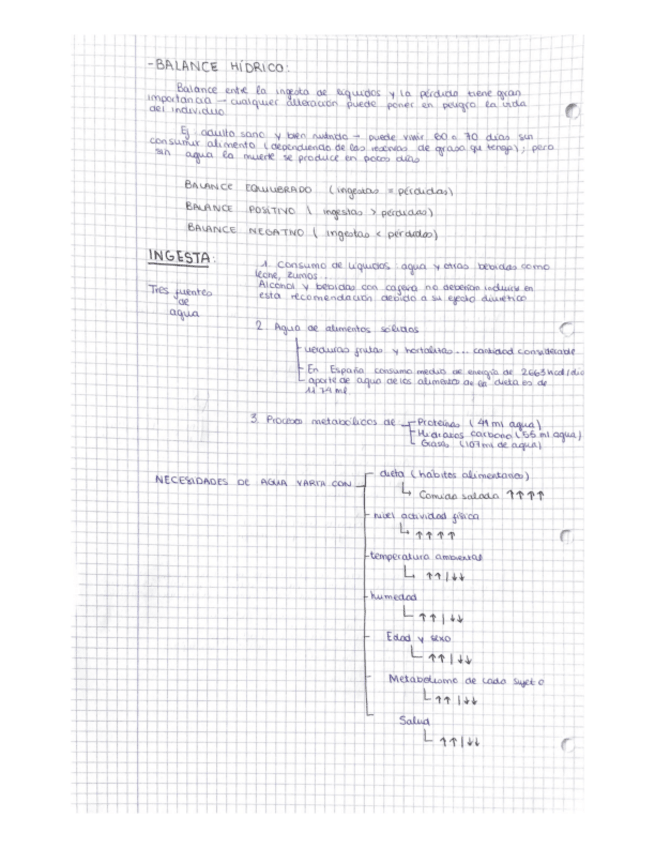 - BALANCE HÍDRICO:
Balance entre la ingesta de líquidos y la pérdida tiene gran
importancia → cualquier alteración puede poner en peligro la vida
del individuo
Ej adulto sano y bien nutrido → puede vivir 60 o 70 días sin
consumir alimento (dependiendo de las reservas de grasa que tenga); pero
sin agua la muerte se produce en pocos días
BALANCE EQUILIBRADO (ingestas = pérdidas)
BALANCE POSITIVO ( ingestas > pérdidas)
BALANCE NEGATIVO ( ingestas < pérdidas)
INGESTA:
Tres fuentes
de
agua
1. Consumo de líquidos agua y otras bebidas como
leche, zumos...
Alcohol y bebidas con cafeína no deberían incluirse en
esta recomendación debido a su efecto diurético
2. Agua de alimentos sólidos
verduras frutas y hortalizas... cantidad considerable
En España consumo medio de energía de 2663 kcal/día
aporte de agua de los alimentos de la dieta es de
1174 ml.
3. Procesos metabólicos de Proteínas (41 ml agua)
Hidratos carbono (55 ml agua)
Grasas (107 ml de agua)
NECESIDADES DE AGUA VARÍA CON
dieta (hábitos alimentarios)
↳ Comida salada ↑↑↑↑
nivel actividad física
↳ ↑↑↑↑
temperatura ambiental
↳ ↑↑|↓↓
humedad
↳ ↑↑|↓↓
Edad y sexo
↳ ↑↑|↓↓
Metabolismo de cada sujeto
↳ ↑↑|↓↓
Salud
↳ ↑↑|↓↓